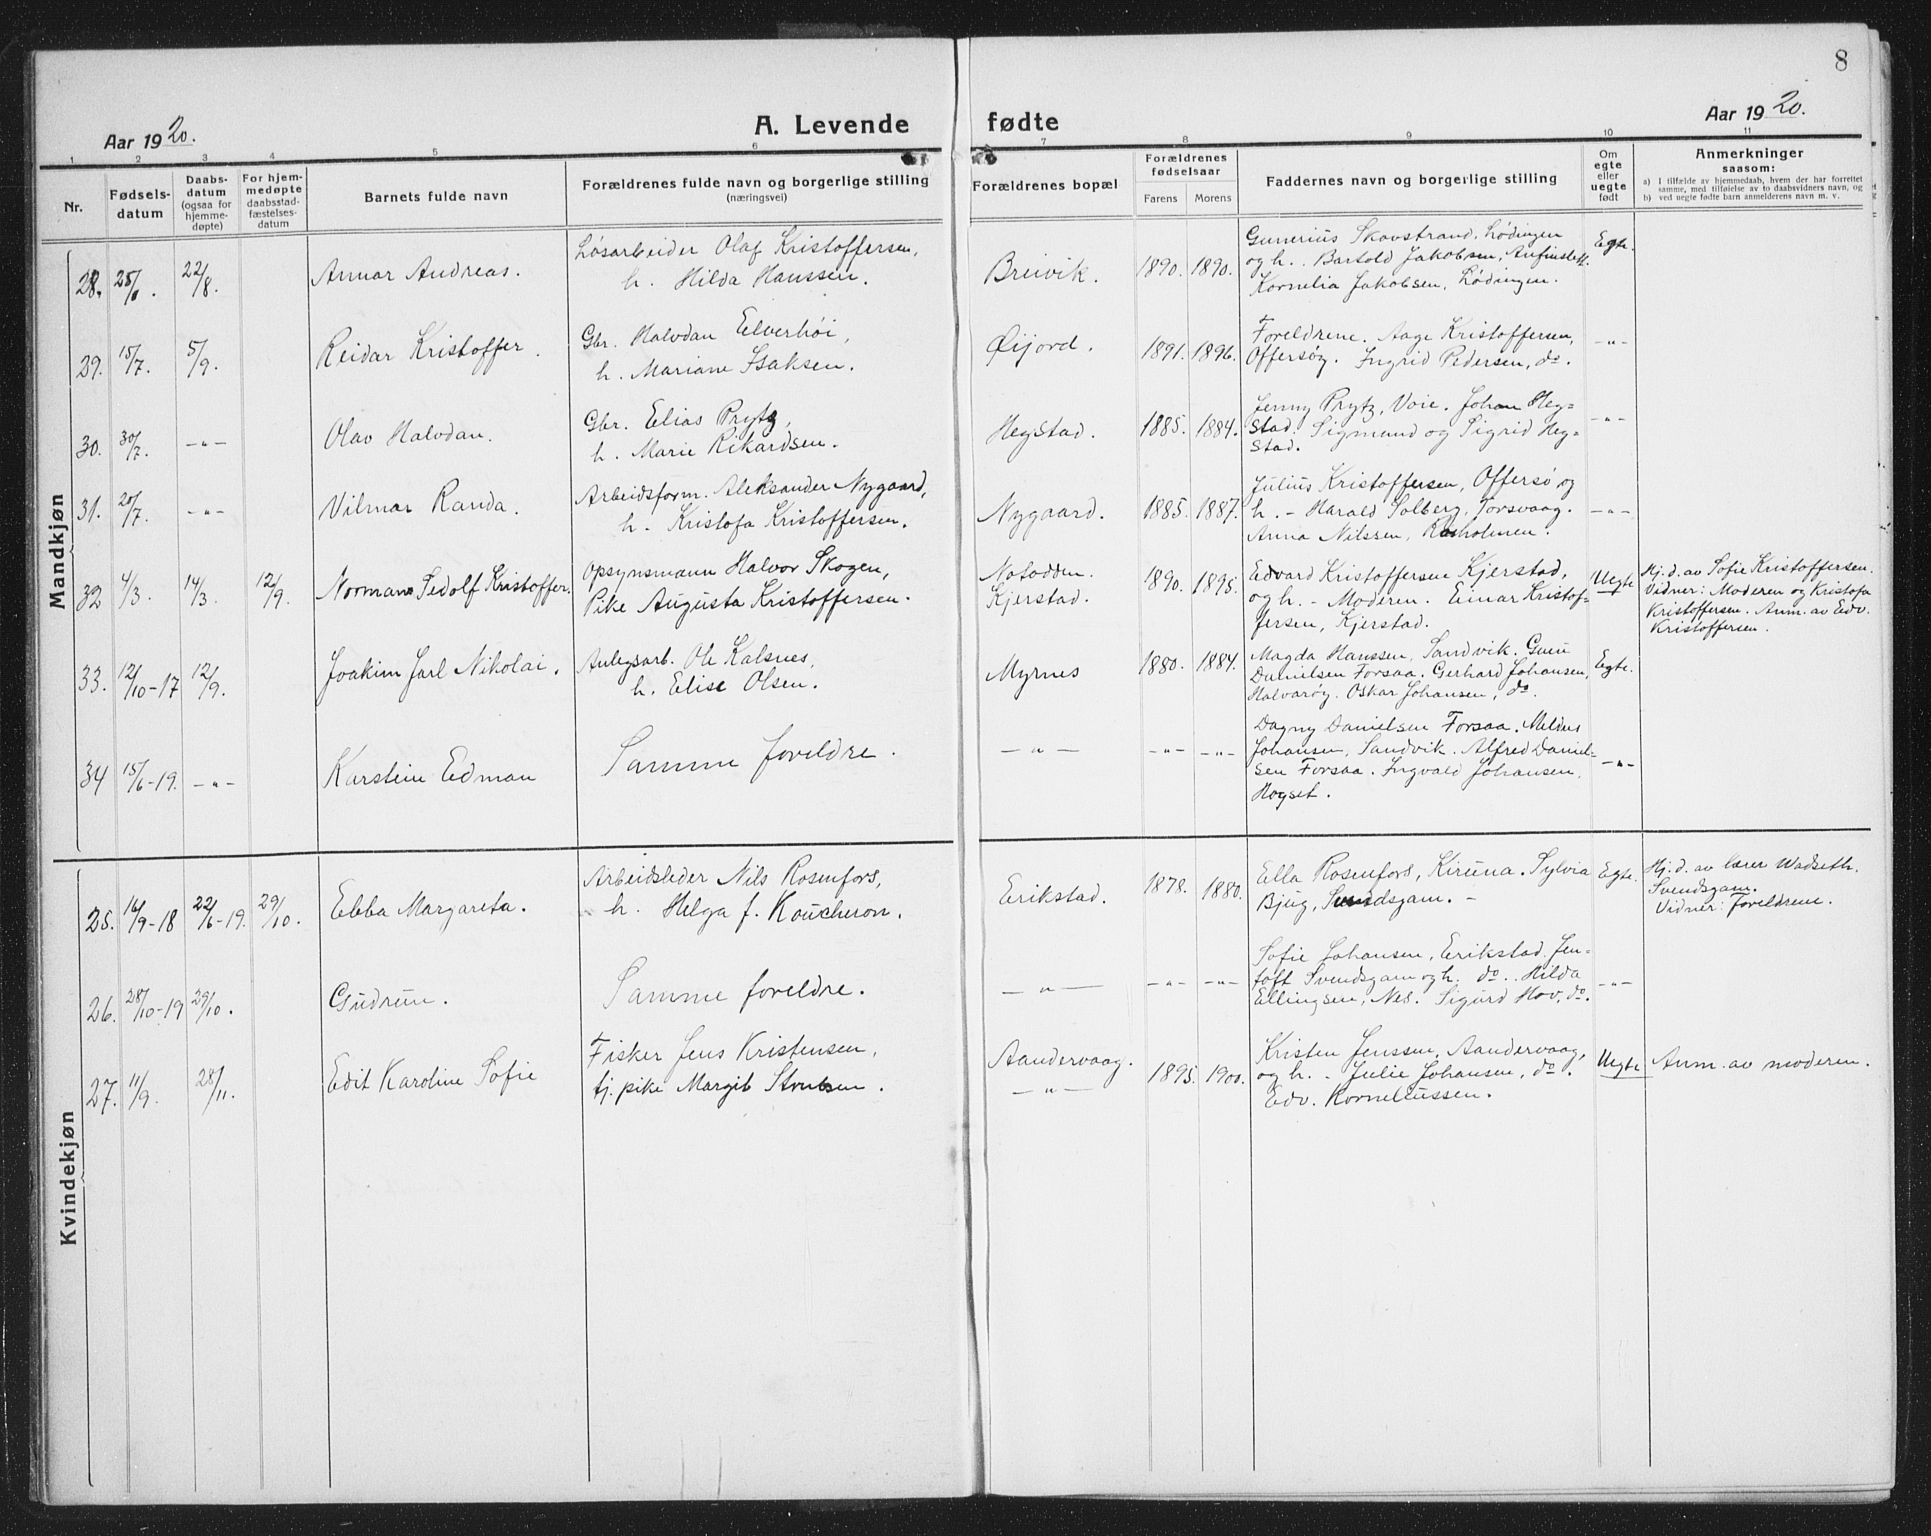 8
Aar 1920.
A. Levende fødte
Aar 1920.
1 2 3 4 5 6 7 8 9 10 11
Nr.
Fødsels-
datum
Daabs-
datum
(ogsaa for
hjemme-
døpte)
For hjem-
medøpte
daabsstad-
fæstelses-
datum
Barnets fulde navn
Forældrenes fulde navn og borgerlige stilling
(næringsvei)
Forældrenes bopæl
Forældrenes
fødselsaar
Farens Morens
Faddernes navn og borgerlige stilling
Om
egte
eller
uegte
født
Anmerkninger
saasom:
a) I tilfælde av hjemmedaab, hvem der har forrettet
samme, med tilføielse av to daabsvidners navn, og
b) ved uegte fødte barn anmelderens navn m. v.
Mandkjøn
28. 22/8. Annar Andreas.
Løsarbeider Olaf Kristoffersen,
h. Hilda Hanssen.
Breivik. 1890. 1890.
Gunerius Skovstrand, Lødingen
og h. Bartold Jakobsen,
Kornelia Jakobsen, Lødingen.
Egte.
29. 15/7. 5/9. Reidar Kristoffer.
Gbr. Halvdan Elverhöi,
h. Mariane Isaksen.
Øijord. 1891. 1896.
Foreldrene. Aage Kristoffersen,
Offersøy. Ingrid Pedersen, do.
-"-
30. 30/7. -"- Olav Halvdan.
Gbr. Elias Prytz,
h. Marie Rikardsen.
Hegstad. 1885. 1884.
Jenny Prytz, Voie. Johan Heg=
stad. Sigmund og Sigrid Heg=
stad.
-"-
31. 20/7. -"- Vilmar Randa.
Arbeidsform. Aleksander Nygaard,
h. Kristofa Kristoffersen.
Nygaard. 1885. 1887.
Julius Kristoffersen, Offersø og
h. - Harald Solberg, Torsvaag.
Anna Nilssen,
-"-
32 4/3. 14/3. 12/9. Norman Sedolf Kristoffer.
Opsynsmann Halvor Skogen,
Pike Augusta Kristoffersen.
Notodden.
Kjerstad.
1890. 1895.
Edvard Kristoffersen Kjerstad,
og h. - Moderen. Einar Kristof-
fersen, Kjerstad.
Uegte
Hj. d. av Sofie Kristoffersen.
Vidner: Moderen og Kristofa
Kristoffersen. Anm. av Edv.
Kristoffersen.
33. 12/10-17 12/9. Joakim Jarl Nikolai.
Anlegsarb. Ole Kalsnes,
h. Elise Olsen.
Myrnes 1880. 1884.
Magda Hanssen, Sandvik.
Danielsen Forsaa. Gerhard Johansen,
Halvarøy. Oskar Johansen, do.
Egte.
34 15/6-19. -"- Karstein Edman
Samme foreldre.
-"- -"- -"-
Dagny Danielsen Forsaa.
Johansen, Sandvik. Alfred Daniel-
sen Forsaa. Ingvald Johansen,
Hogset.
-"-
Kvindekjøn
25. 16/9-18 22/6-19. 29/10. Ebba Margareta.
Arbeidsleder Nils Rosenfors,
h. Helga f. Koucheron.
Erikstad. 1878. 1880.
Ella Rosenfors, Kiruna. Sylvia
Bjug, Svendsgam. -
Egte.
Hj. d. av lærer Wadseth,
Svendsgam.
Vidner: Foreldrene.
26. 28/10-19 29/10. Gudrun.
Samme foreldre.
-"- -"- -"-
Sofie Johansen, Erikstad. Jen-
toft Svendsgam og h. do. Hilda
Ellingsen, Nes. Sigurd Hov, do.
-"-
27. 11/9. 28/11. Edit Karoline Sofie
Fisker Jens Kristensen,
tj. pike Margit
Aandervaag.
-"-
1895. 1900.
Kristen Jenssen, Aandervaag,
og h. - Julie Johansen, do.
Edv. Korneliussen.
Uegte
Anm. av moderen.